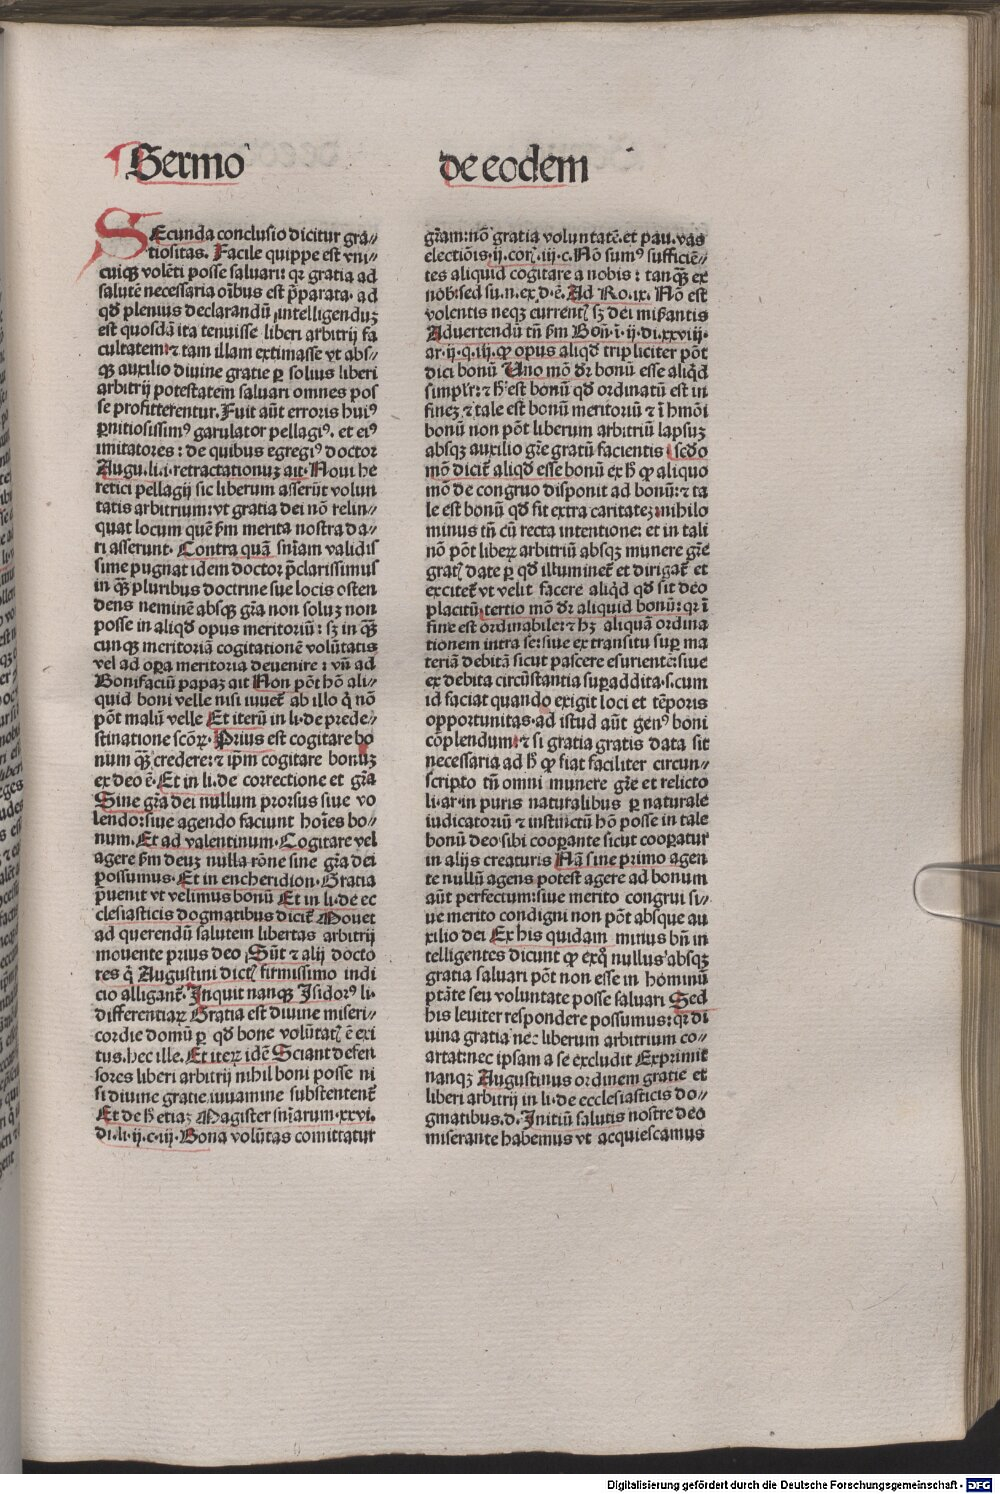 Sermo
de eodem
SEcunda conclusio dicitur gra//
tiositas. Facile quippe est vni//
cuiqꝫ volẽti posse saluari: qꝛ gratia ad
salutẽ necessaria oĩbus est p̃parata. ad
qd̃ plenius declarandũ intelligenduꝫ
est quosdã ita tenuisse liberi arbitrij fa
cultatem: ⁊ tam illam extimasse vt abs//
qꝫ auxilio diuine gratie ꝑ solius liberi
arbitrij potestatem saluari omnes pos
se profitterentur. Fuit aũt erroris huiꝰ
ꝑnitiosissimꝰ garulator pellagiꝰ. et eiꝰ
imitatores: de quibus egregiꝰ doctor
Augu. li. i. retractationuꝫ ait. Noui he
retici pellagij sic liberum asserũt volun
tatis arbitrium: vt gratia dei nõ relin//
quat locum quẽ ẜm merita nostra da//
ri asserunt. Contra quã sñiam validis
sime pugnat idem doctor p̃clarissimus
in qꝫ pluribus doctrine sue locis osten
dens neminẽ absqꝫ gr̃a non soluꝫ non
posse in aliqd̃ opus meritoriũ: sꝫ in qꝫ
cunqꝫ meritoriã cogitationẽ volũtatis
vel ad oꝑa meritoria deuenire: vñ ad
Bonifaciũ papaꝫ ait Non põt hõ ali//
quid boni velle nisi iuuet᷑ ab illo q̃ nõ
põt malũ velle Et iterũ in li. de prede//
stinatione scõꝝ. Prius est cogitare bo
num qꝫ credere: ⁊ ip̃m cogitare bonuꝫ
ex deo ẽ. Et in li. de correctione et gr̃a
Sine gr̃a dei nullum prorsus siue vo
lendo: siue agendo faciunt hoĩes bo//
num. Et ad valentinum. Cogitare vel
agere ẜm deuꝫ nulla rõne sine gr̃a dei
possumus. Et in encheridion. Gratia
p̃uenit vt velimus bonũ Et in li. de ec
clesiasticis dogmatibus dicit᷑ Mouet
ad querendũ salutem libertas arbitrij
mouente prius deo. Sũt ⁊ alij docto
res q̃ Augustini dictꝭ firmissimo indi
cio alligant᷑. Inquit nanqꝫ Isidorꝰ li.
differentiaꝝ Gratia est diuine miseri//
cordie donũ ꝑ qd̃ bone volũtatꝭ ẽ exi
tus. hec ille. Et iteꝝ idẽ Sciant defen
sores liberi arbitrij nihil boni posse ni
si diuine gratie iuuamine substentent᷑
Et de h̃ etiaꝫ Magister sñiarum. xxvi.
di. li. ij. c. iij. Bona volũtas comittatur
gr̃am: nõ gratia voluntatẽ. et pau. vas
electiõis. ij. corꝭ. iij. c. Nõ sumꝰ sufficiẽ//
tes aliquid cogitare a nobis: tanqꝫ ex
nob̃: sed su. n. ex. d. ẽ. Ad Ro. ix. Nõ est
volentis neqꝫ currentꝭ sꝫ dei mis̃antis
Aduertendũ tñ ẜm Boñ. ĩ. ij. di. xxviij.
ar. ij. q. iij. ꝙ opus aliqd̃ tripliciter põt
dici bonũ Uno mõ dr̃ bonũ esse aliqd̃
simplr̃: ⁊ h̃ est bonũ qd̃ ordinatũ est in
fineꝫ ⁊ tale est bonũ meritoriũ ⁊ ĩ hmõi
bonũ non põt liberum arbitriũ lapsuꝫ
absqꝫ auxilio gr̃e gratũ facientis scd̃o
mõ dicit᷑ aliqd̃ esse bonũ ex h̃ ꝙ aliquo
mõ de congruo disponit ad bonũ: ⁊ ta
le est bonũ qd̃ fit extra caritateꝫ nihilo
minus tñ cũ recta intentione: et in tali
nõ põt libeꝝ arbitriũ absqꝫ munere gr̃e
gratꝭ date ꝑ qd̃ illuminet᷑ et dirigat᷑ et
excitet᷑ vt velit facere aliqd̃ qd̃ sit deo
placitũ. tertio mõ dr̃ aliquid bonũ: qꝛ ĩ
fine est ordinabile: ⁊ hꝫ aliquã ordina
tionem intra se: siue ex transitu suꝑ ma
teriã debitã sicut pascere esurientẽ: siue
ex debita circũstantia suꝑaddita. s. cum
id faciat quando exigit loci et tẽporis
opportunitas. ad istud aũt genꝰ boni
cõplendum: ⁊ si gratia gratis data sit
necessaria ad h̃ ꝙ fiat faciliter circun//
scripto tñ omni munere gr̃e et relicto
li. ar. in puris naturalibus ꝑ naturale
iudicatoriũ ⁊ instinctũ hõ posse in tale
bonũ deo sibi cooꝑante sicut cooꝑatur
in alijs creaturis Nã sine primo agen
te nullũ agens potest agere ad bonum
aũt perfectum: siue merito congrui si//
ue merito condigni non põt absque au
xilio dei Ex his quidam minus bñ in
telligentes dicunt ꝙ exq̃ nullus absqꝫ
gratia saluari põt non esse in hominũ
ptãte seu voluntate posse saluari Sed
his leuiter respondere possumus: qꝛ di
uina gratia nec liberum arbitrium co//
artat: nec ipsam a se excludit Exprimit
nanqꝫ Augustinus ordinem gratie et
liberi arbitrij in li. de ecclesiasticis do//
gmatibus. d. Initiũ salutis nostre deo
miserante habemus vt acquiescamus
Digitalisierung gefördert durch die Deutsche Forschungsgemeinschaft - DFG